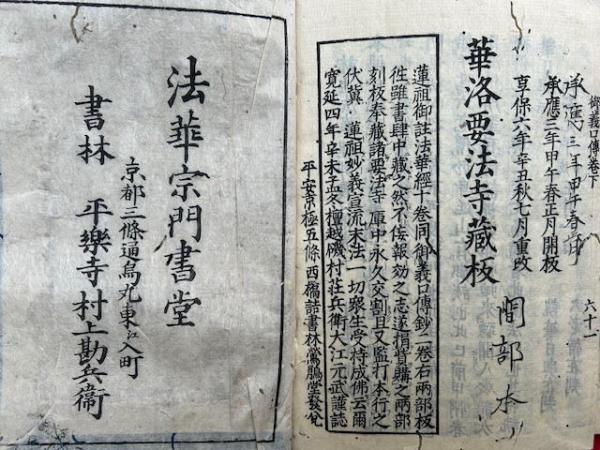 御義口傳卷下
六十一
承應三年甲午春
承應三年甲午春正月開板
享保六年辛丑秋七月重改
間部本
華洛要法寺藏板
蓮祖御註法華經十卷同御義口傳鈔二卷右兩部板
往雖書肆中藏之然不佞報効之志遂捐貲購之兩部
刻板奉藏諸要法寺庫中永久交割且又監打本行之
伏冀蓮祖妙義宣流末法一切衆生受持成佛云爾
寛延四年辛未孟冬檀越磯村荘兵衛大江元武謹誌
平安京極五條西橋詰書林鶯堂發兌
法華宗門書堂
京都三條通烏丸東江入町
書林 平樂寺村上勘兵衞